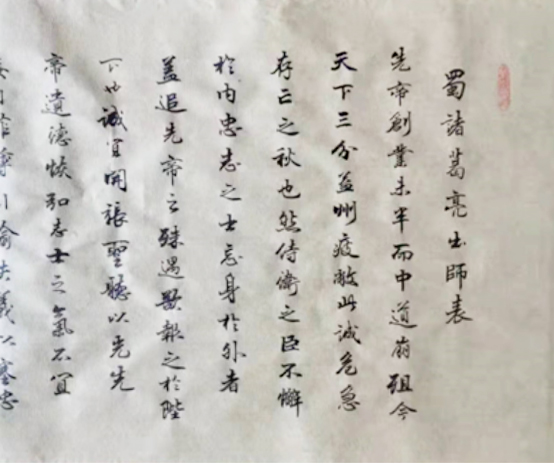 蜀諸葛亮出師表
先帝創業未半而中道崩殂今
天下三分益州疲敝此誠危急
存亡之秋也然侍衛之臣不懈
於內忠志之士忘身於外者
蓋追先帝之殊遇欲報之於陛
下也誠宜開張聖聽以光先
帝遺德恢弘志士之氣不宜
喻失義以塞忠